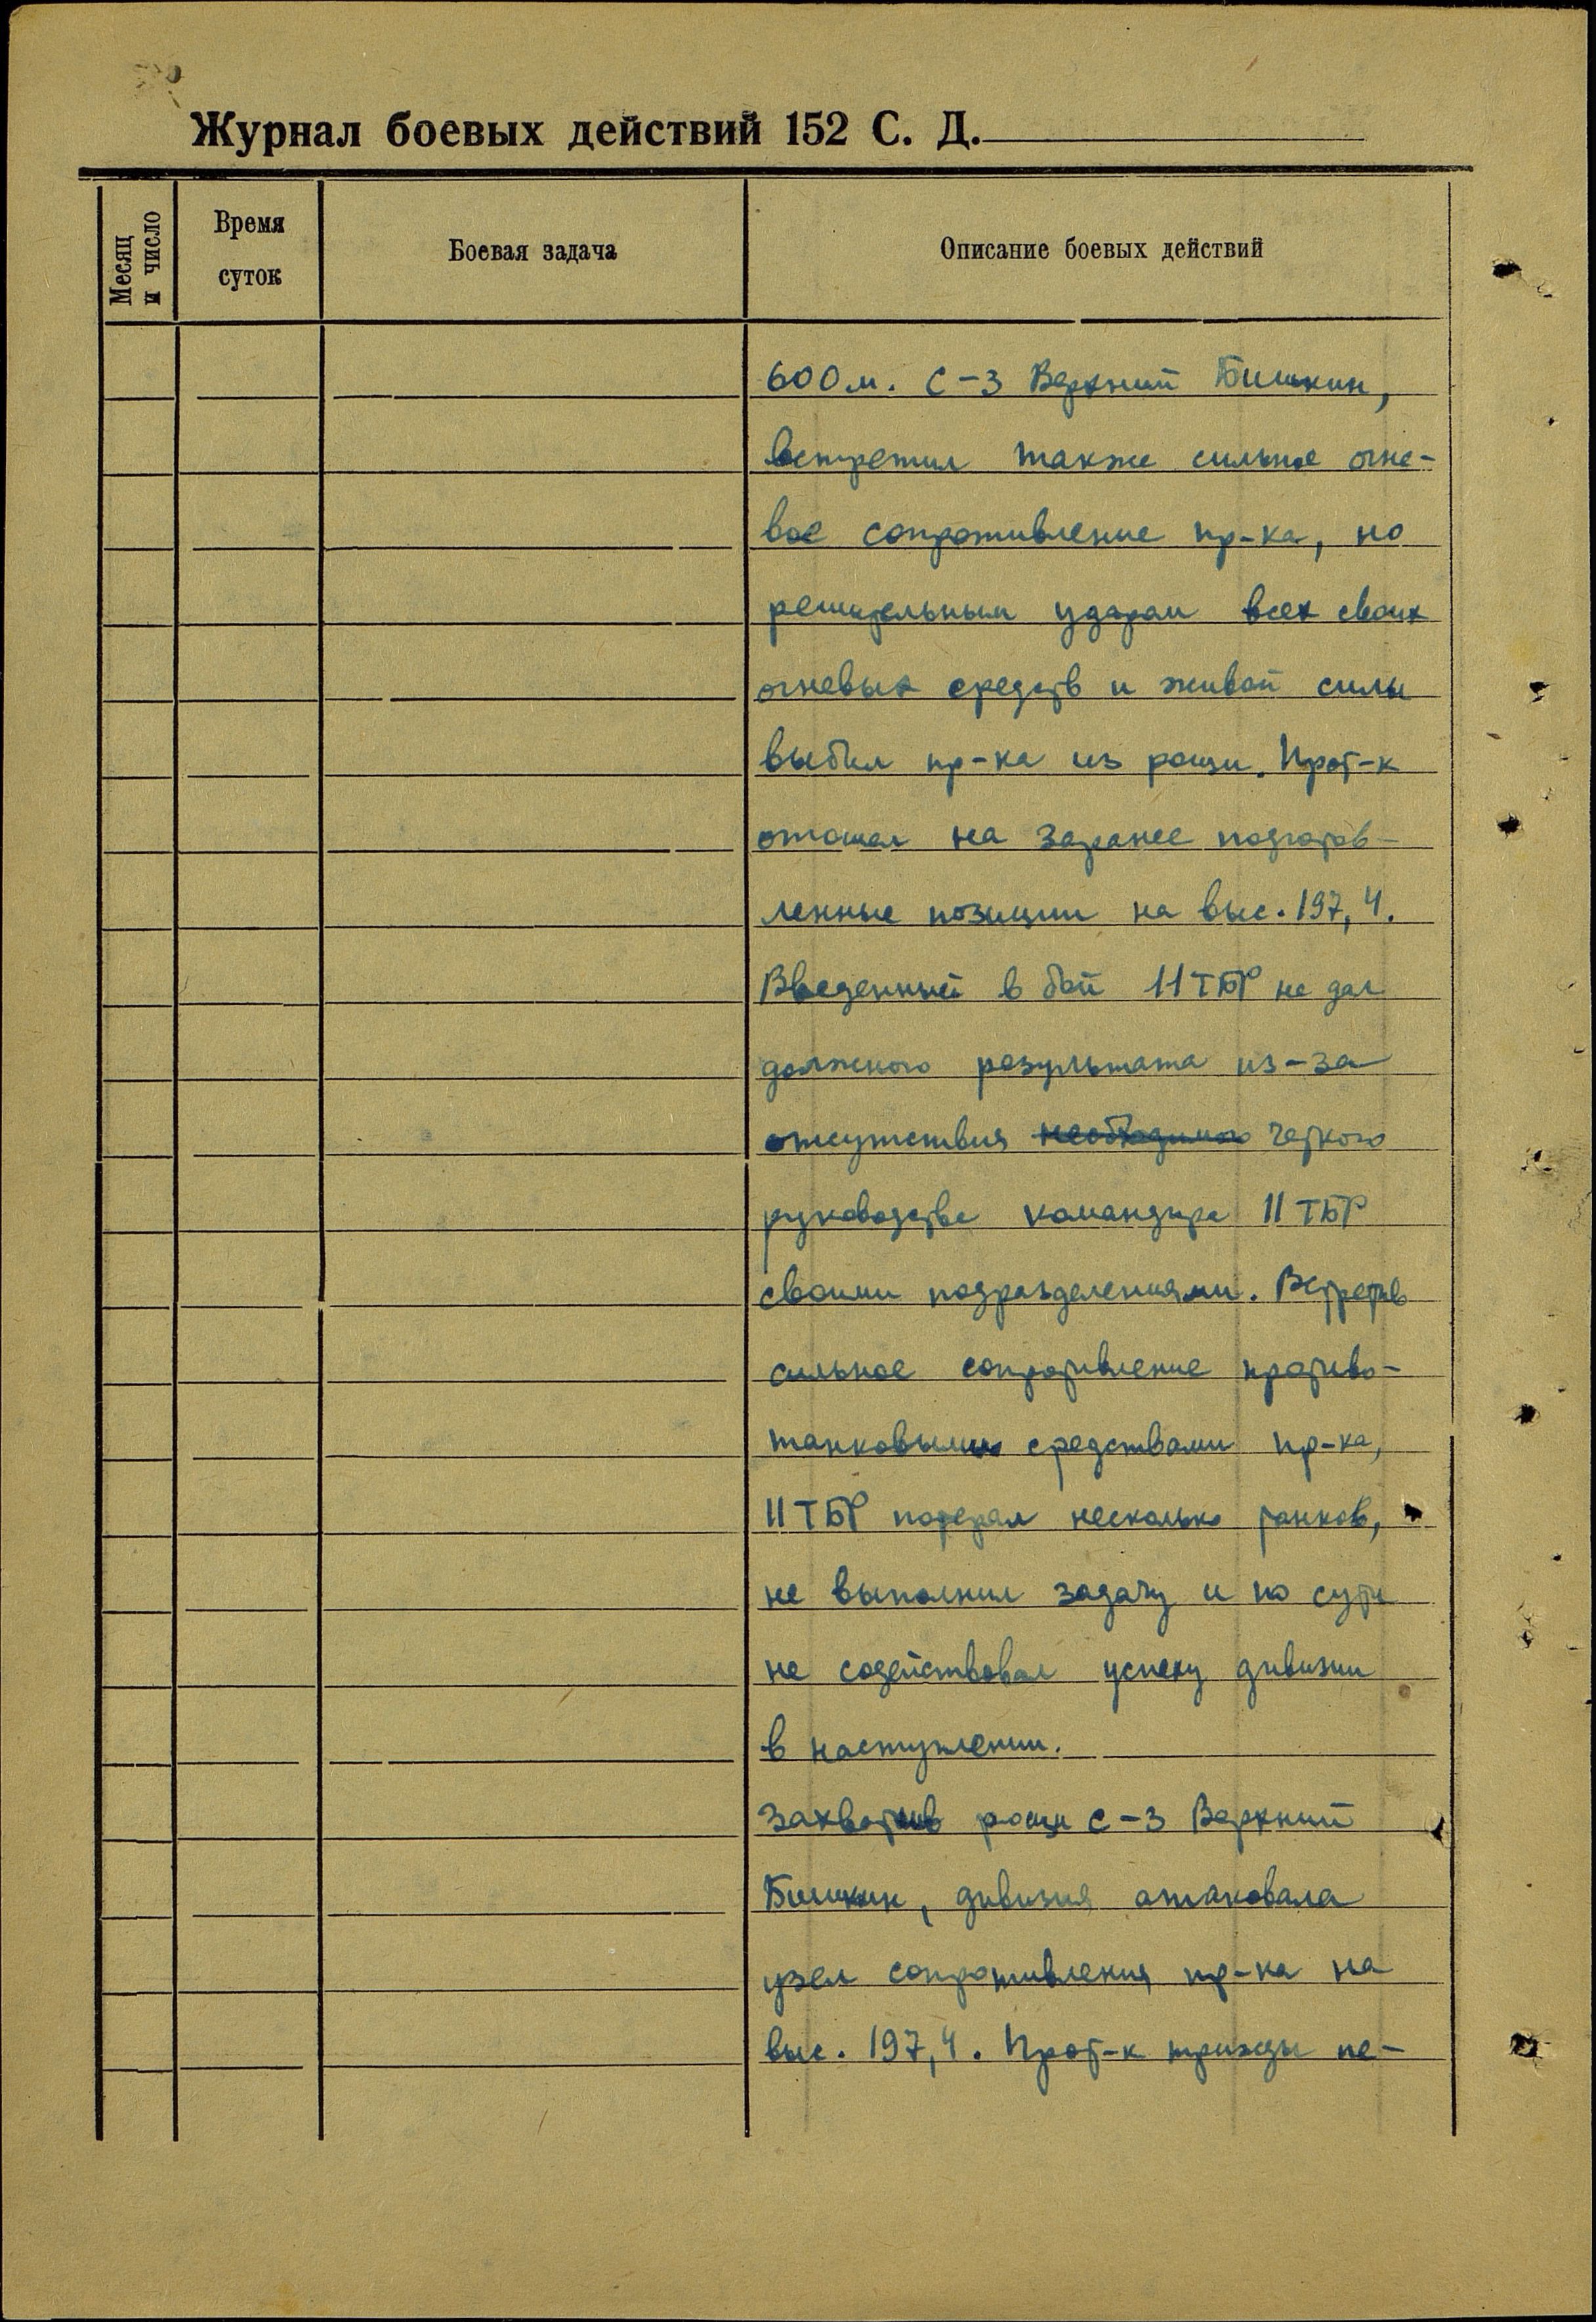 Журнал боевых действий 152 С. Д.
Месяц и число
Время суток
Боевая задача
Описание боевых действий
600 м. С-З Верхний Бишкин,
встретил также сильное огне-
вое сопротивление пр-ка, но
решительным ударом всех своих
огневых средств и живой силы
выбил пр-ка из рощи. Прот-к
отошел на заранее подготов-
ленные позиции на выс. 197,4.
Введенный в бой 11 ТБР не дал
должного результата из-за
отсутствия необходимого четкого
руководства командира 11 ТБР
своими подразделениями. Встретив
сильное сопротивление противо-
танковыми средствами пр-ка,
11 ТБР потерял несколько танков,
не выполнил задачу и по сути
не содействовал успеху дивизии
в наступлении.
Захватив рощи с-з Верхний
Бишкин, дивизия атаковала
узел сопротивления пр-ка на
выс. 197,4. Прот-к трижды пе-